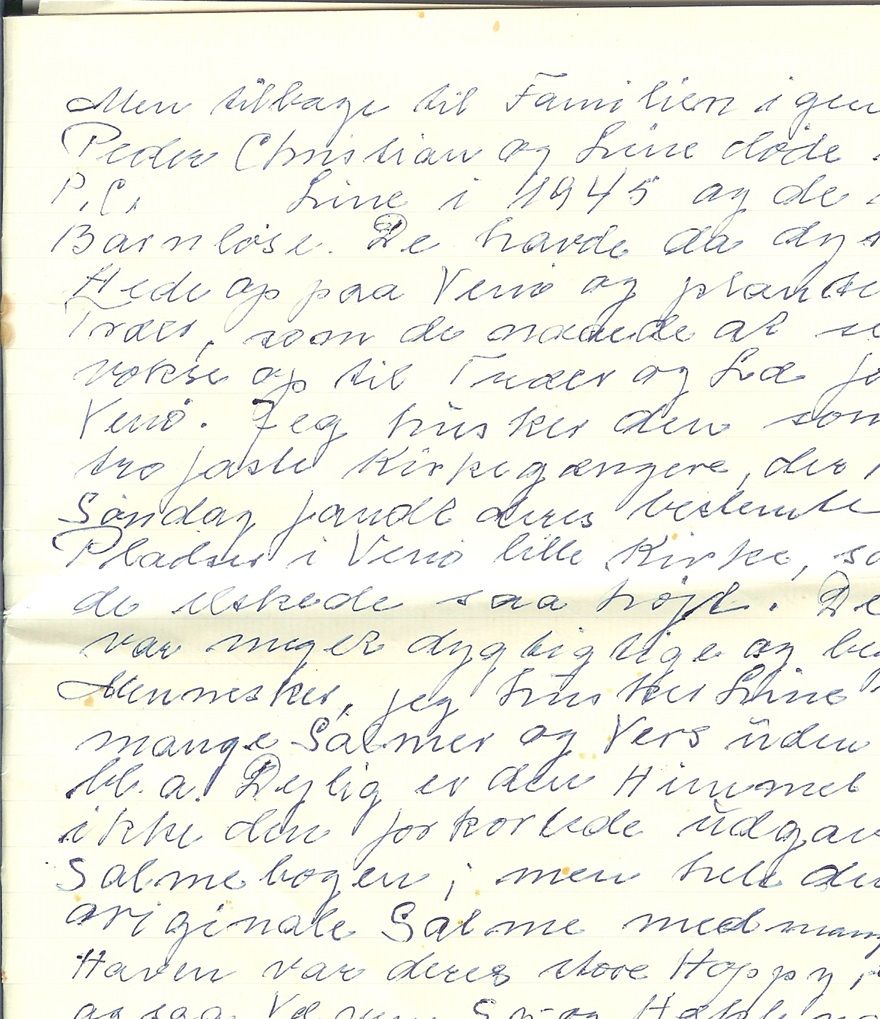 Men tilbage til Familien igen
Peder Christian og Line døde
P.C. Line i 1945 og de
Barnløse. De havde da dy
Hede op paa Venø og plante
Træer, som de naaede at se
vokse op til Træer og Læ fo
Venø. Jeg husker dem som
tro faste Kirkegængere, der
Søndag fandt deres bestemte
Pladser i Venø lille Kirke, so
de elskede saa højt. De
var meget dygtigtige og be
Mennesker, jeg husker Line
mange Salmer og Vers uden
bl.a. Dejlig er den Himmel
ikke den forkortede udgav
Salmebogen; men hele den
originale Salme med mang
Haven var deres store Hoppy,
ogsaa og